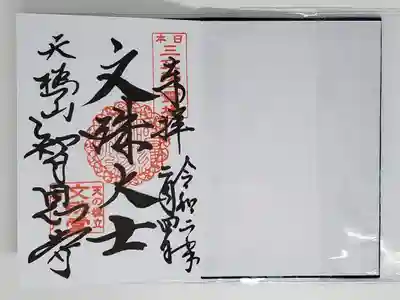 奉拝
令和二年
二月四日
日本
三
文殊大士
天の橋立
文
天橋山
智恩寺